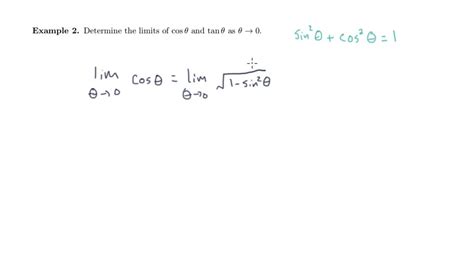 Example 2. Determine the limits of cos θ and tan θ as θ → 0.
sin²θ + cos²θ = 1
lim θ→0 cos θ = lim θ→0 √(1 - sin²θ)